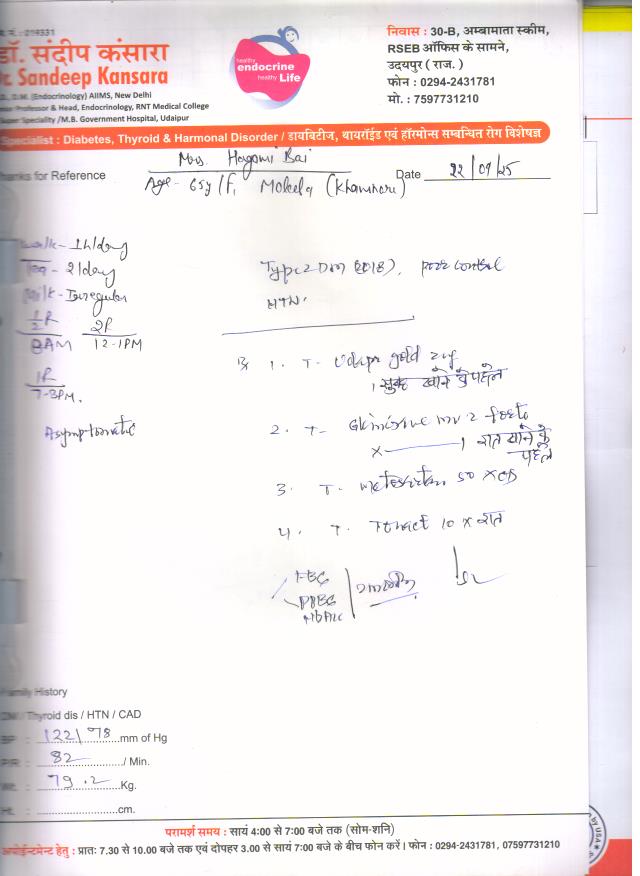 नं. : 019331
डॉ. संदीप कंसारा
Dr. Sandeep Kansara
D.M. (Endocrinology) AIIMS, New Delhi
Professor & Head, Endocrinology, RNT Medical College
Super Speciality /M.B. Government Hospital, Udaipur
healthy
endocrine
healthy Life
निवास : 30-B, अम्बामाता स्कीम,
RSEB ऑफिस के सामने,
उदयपुर ( राज. )
फोन : 0294-2431781
मो. : 7597731210
Specialist : Diabetes, Thyroid & Harmonal Disorder / डायबिटीज, थायरॉईड एवं हॉरमोन्स सम्बन्धित रोग विशेषज्ञ
Thanks for Reference
Mrs. Hagami Bai
Age - 65y/F, Molela (Khamnore)
Date 22/09/25
Walk - 1h/day
Tea - 2/day
Milk - Irregular
1/2R 2R
8AM 12-1PM
1R
7-8PM.
Asymptomatic
Type 2 DM (2018),
HTN.
Rx 1. T- gold
1 सुबह खाने से पहले
2. T- mv 2 forte
x 1 रात खाने के
पहले
3. T. 50 x OD
4. T. 10 x रात
FBG
PPBG
HbA1c
Family History
DM / Thyroid dis / HTN / CAD
BP : 122/78 mm of Hg
P/R : 82 / Min.
Wt. : 79.2 Kg.
Ht. : cm.
परामर्श समय : सायं 4:00 से 7:00 बजे तक (सोम-शनि)
अपोईन्टमेन्ट हेतु : प्रातः 7.30 से 10.00 बजे तक एवं दोपहर 3.00 से सायं 7:00 बजे के बीच फोन करें। फोन : 0294-2431781, 07597731210
by USA